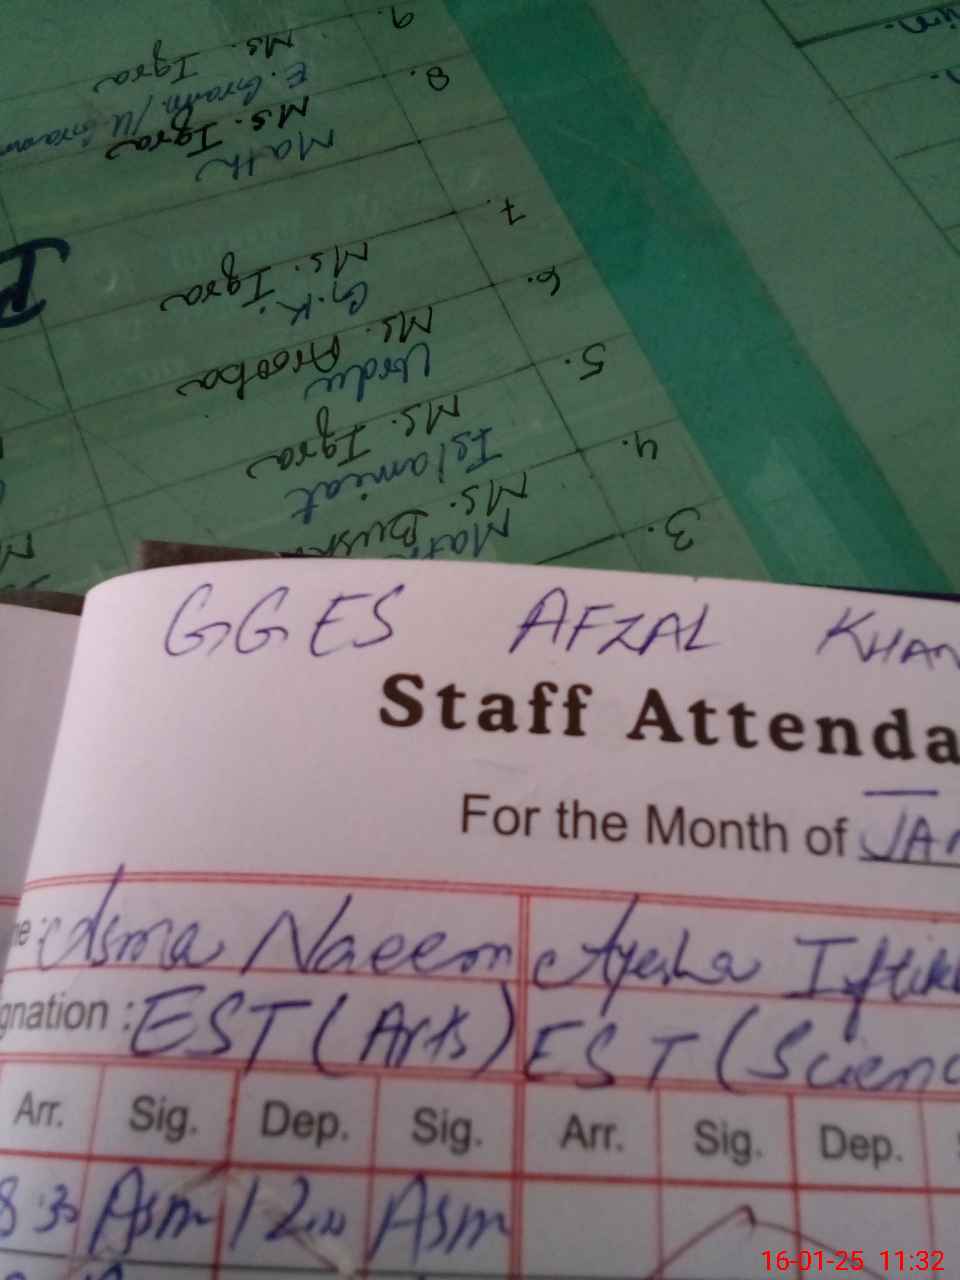 GGES AFZAL KHAN
Staff Attenda
For the Month of JAN
Asma Naeem Ayesha Iftikh
gnation : EST (Arts) EST (Scienc
Arr. Sig. Dep. Sig. Arr. Sig. Dep.
8:30 Asm 12:00 Asm
3.
Ms. Bush
4.
Islamiat
Ms. Iqra
5.
Urdu
Ms. Arooba
6.
G.K.
Ms. Iqra
7.
Math
Ms. Iqra
8.
E. Gram / U. Gram
Ms. Iqra
9.
16-01-25 11:32